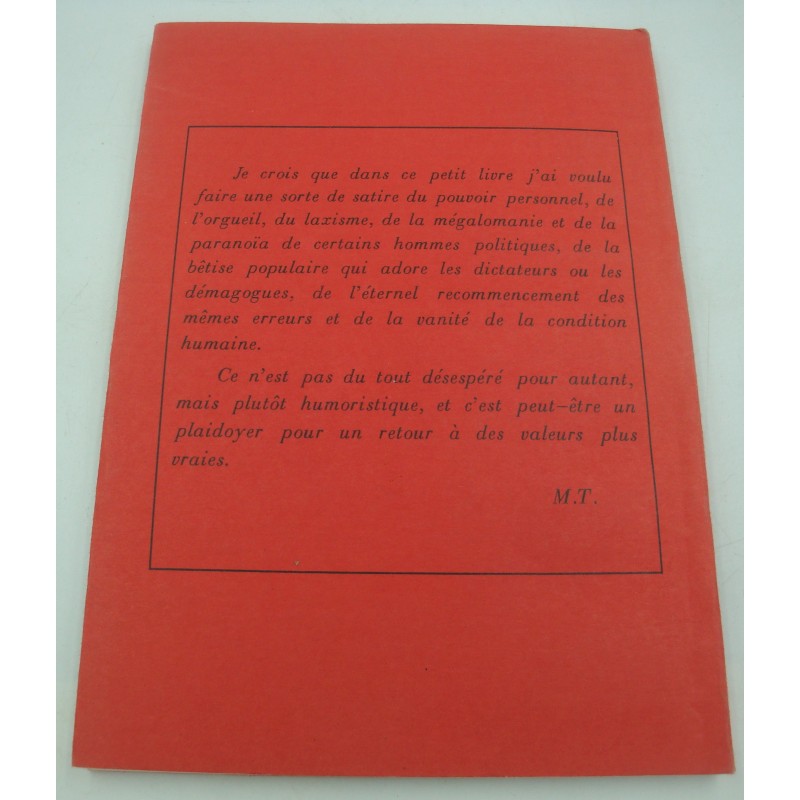 Je crois que dans ce petit livre j'ai voulu
faire une sorte de satire du pouvoir personnel, de
l'orgueil, du laxisme, de la mégalomanie et de la
paranoïa de certains hommes politiques, de la
bêtise populaire qui adore les dictateurs ou les
démagogues, de l'éternel recommencement des
mêmes erreurs et de la vanité de la condition
humaine.
Ce n'est pas du tout désespéré pour autant,
mais plutôt humoristique, et c'est peut-être un
plaidoyer pour un retour à des valeurs plus
vraies.
M.T.